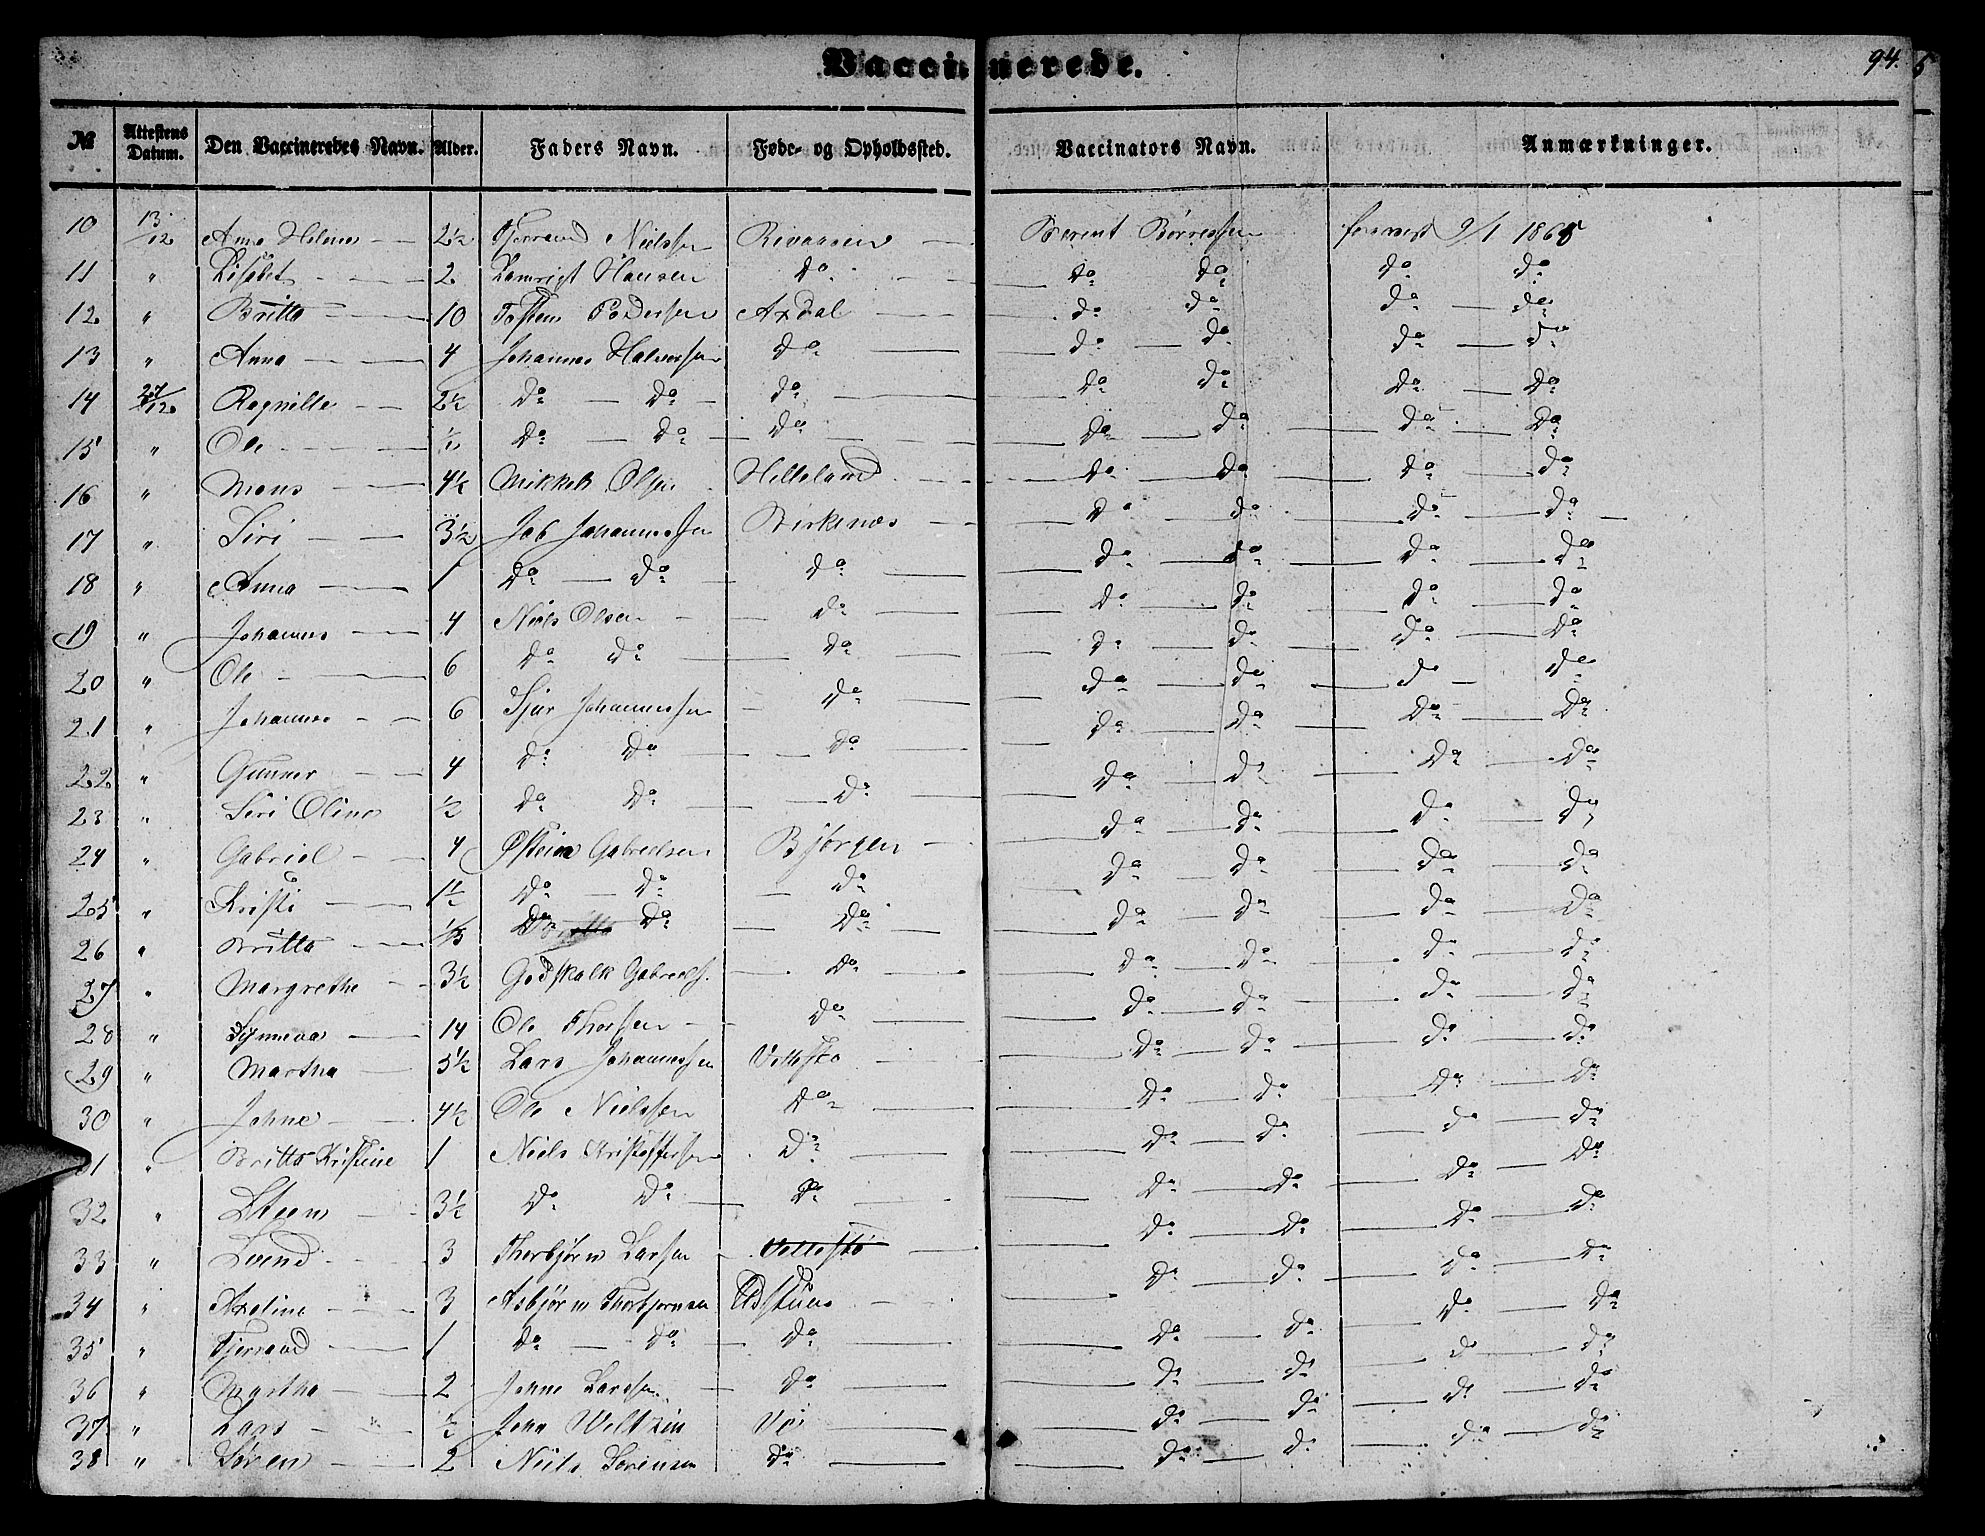 Vaccinerede. 94.
№ Attestens Datum. Den Vaccineredes Navn. Alder. Faders Navn. Føde- og Opholdssted. Vaccinators Navn. Anmærkninger.
10 13/12 Anna Helene — 2½ Tjerand Nielssen Berent Børressen 9/1 1865
11 " Lisabet — 2 Hansen do do do do do
12 " Britta — 10 Tosten Pedersen Ardal — do do do do
13 " Anna — 4 Johannes Halvorsen do — do do do do
14 27/12 Ragnilla — 2½ do do do — do do do do
15 " Ole — ½ do do do — do do do do
16 " Mons — 4½ Mikkel Olsen Helleland do do do do
17 " Siri — 3½ Job Johannessen Birkenes do do do do
18 " Anna — 1 do do do — do do do do
19 " Johannes — 4 Niels Olsen do — do do do do
20 " Ole — 6 do do do — do do do do
21 " Johannes — 6 Sjur Johannessen do — do do do do
22 " Gunner — 4 do do do — do do do do
23 " Siri Oline ½ do do do — do do do do
24 " Gabriel — 4 Østein Gabrielsen Bjørgen — do do do do
25 " Kristi — 1½ do do do do do do do
26 " Britta — do do do — do do do do
27 " Margrethe — 3½ Godskalk Gabriels. do — do do do do
28 " Synneva — 14 Ole Thorsen do — do do do do
29 " Martha — 5½ Lars Johannessen Vettestø do do do do
30 " Johne — 4½ Ole Nielssen do — do do do do
31 " Britta Kristine 1 Niels Kristoffersen do — do do do do
32 " Steen — 3½ do do do — do do do do
33 " Svend — 3 Thorbjørn Larsen Vettestø — do do do do
34 " Axeline — 3 Asbjørn Thorbjørnsen do do do do
35 " Tjerand — 1 do do do — do do do do
36 " Martha — 2 Johne Larssen do — do do do do
37 " Lars — ½ John Weltzin — do do do do
38 " Søren — 2 Niels Sørensen do — do do do do